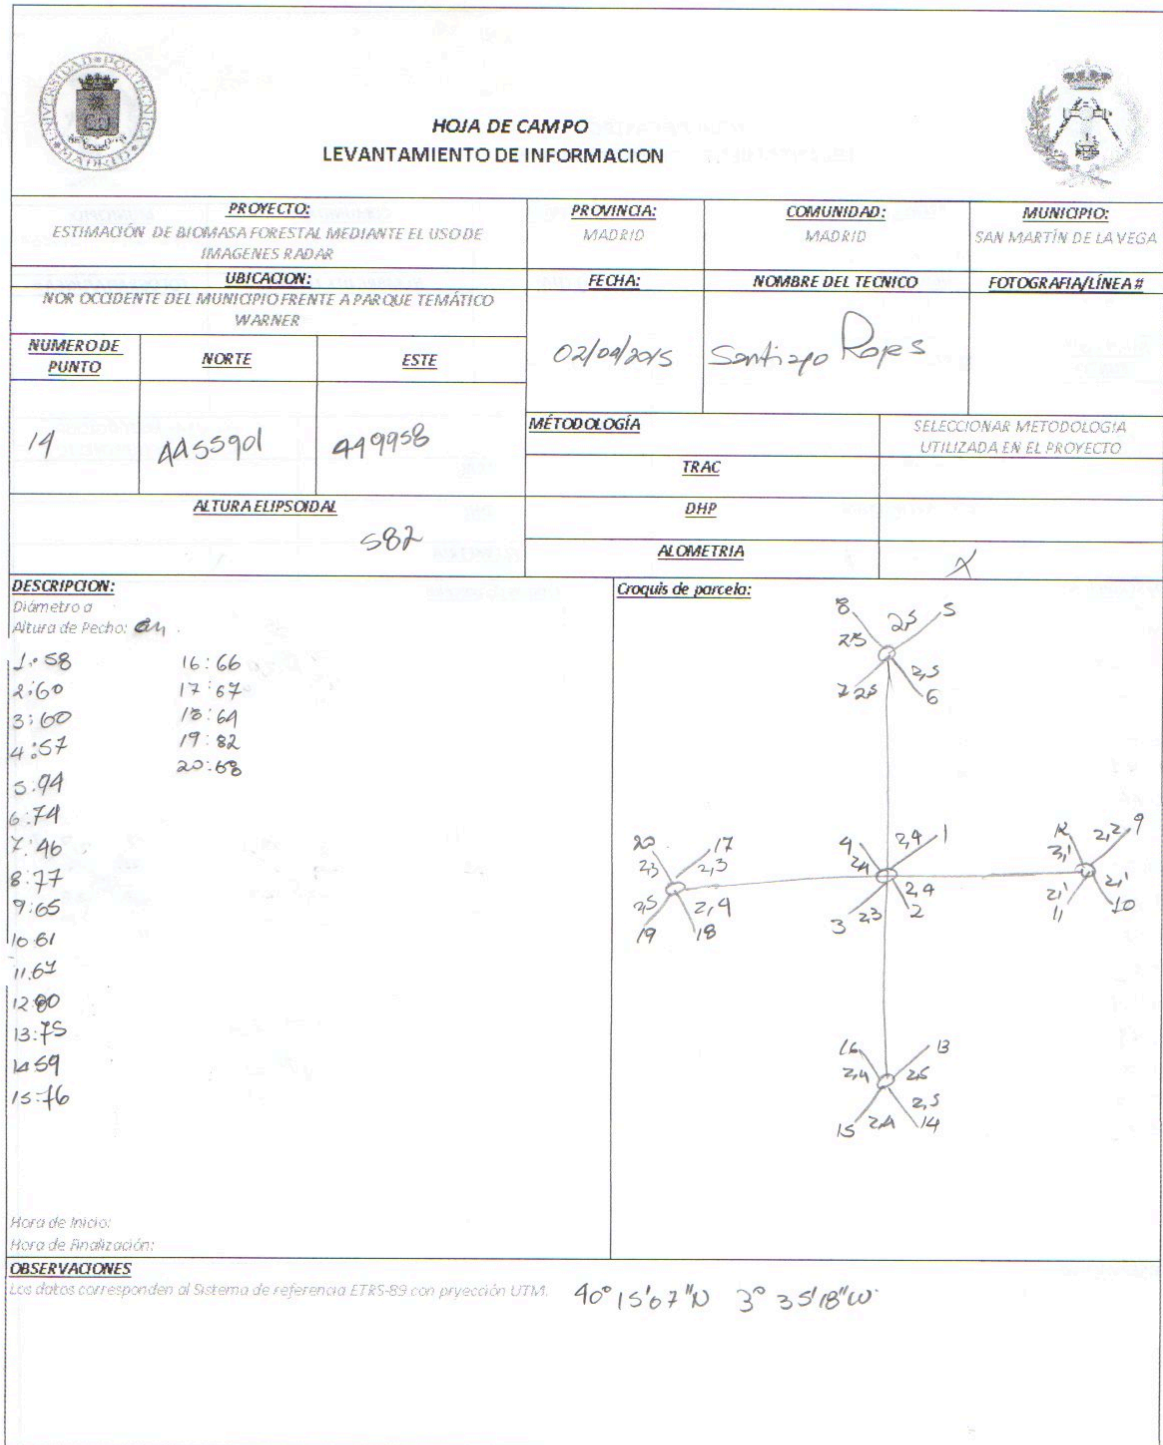 UNIVERSIDAD POLITECNICA
MADRID
HOJA DE CAMPO
LEVANTAMIENTO DE INFORMACION
PROYECTO:
ESTIMACIÓN DE BIOMASA FORESTAL MEDIANTE EL USO DE
IMAGENES RADAR
PROVINCIA:
MADRID
COMUNIDAD:
MADRID
MUNICIPIO:
SAN MARTÍN DE LA VEGA
UBICACION:
NOR OCCIDENTE DEL MUNICIPIO FRENTE A PARQUE TEMÁTICO
WARNER
FECHA:
02/09/2015
NOMBRE DEL TECNICO
Santiago
FOTOGRAFIA/LÍNEA #
NUMERO DE
PUNTO
NORTE
ESTE
14
4455901
449958
MÉTODOLOGÍA
SELECCIONAR METODOLOGIA
UTILIZADA EN EL PROYECTO
TRAC
ALTURA ELIPSOIDAL
582
DHP
ALOMETRIA
X
DESCRIPCION:
Diámetro a
Altura de Pecho:
1:58
2:60
3:60
4:57
5:94
6:74
7:46
8:77
9:65
10 61
11.67
12 80
13:75
14 59
15:76
16:66
17:67
18:64
19:82
20:68
Croquis de parcela:
8 2,5 5
2,5
2,5
7 2,5 6
20 17
2,3 2,3
2,5 2,4
19 18
4 2,4 1
2,4
2,4
3 2,3 2
12 2,2 9
2,1
2,1 10
11
16 13
2,4 2,5
2,5
15 2,4 14
Hora de Inicio:
Hora de Finalización:
OBSERVACIONES
Los datos corresponden al Sistema de referencia ETRS-89 con pryección UTM.
40° 15'67"N 3° 35'18"W